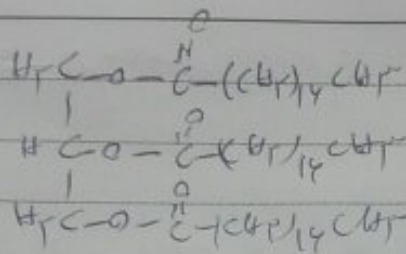 O
||
H₂C—O—C—(CH₂)₁₄CH₃
|    O
|    ||
HC—O—C—(CH₂)₁₄CH₃
|    O
|    ||
H₂C—O—C—(CH₂)₁₄CH₃